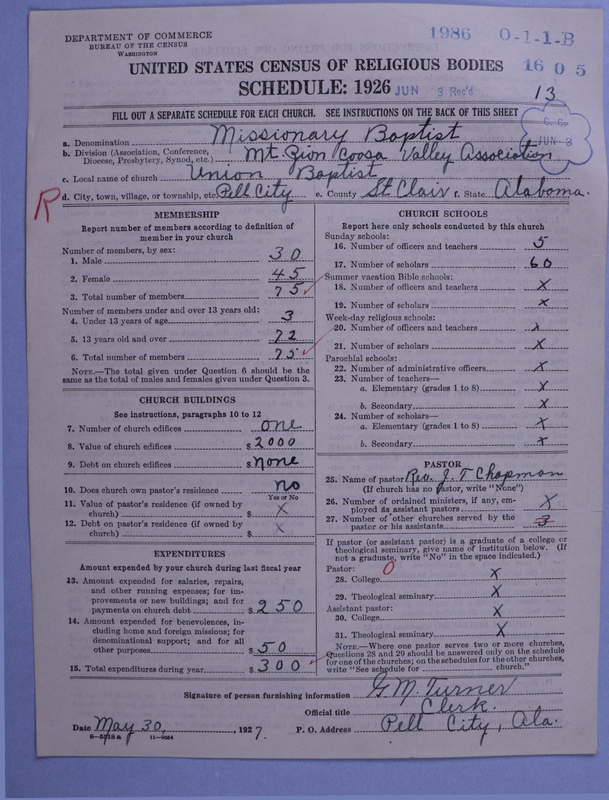 DEPARTMENT OF COMMERCE
BUREAU OF THE CENSUS
WASHINGTON
1986 0-1-1-B
UNITED STATES CENSUS OF RELIGIOUS BODIES
1605
SCHEDULE: 1926 JUN 3 Rec'd
13
FILL OUT A SEPARATE SCHEDULE FOR EACH CHURCH. SEE INSTRUCTIONS ON THE BACK OF THIS SHEET
JUN 3
a. Denomination Missionary Baptist
b. Division (Association, Conference, Diocese, Presbytery, Synod, etc.) Mt Zion Coosa Valley Association
c. Local name of church Union Baptist
R
d. City, town, village, or township, etc. Pell City e. County St Clair f. State Alabama.
MEMBERSHIP
Report number of members according to definition of
member in your church
Number of members, by sex:
1. Male 30
2. Female 45
3. Total number of members 75
Number of members under and over 13 years old:
4. Under 13 years of age 3
5. 13 years old and over 72
6. Total number of members 75
NOTE.—The total given under Question 6 should be the
same as the total of males and females given under Question 3.
CHURCH BUILDINGS
See instructions, paragraphs 10 to 12
7. Number of church edifices one
8. Value of church edifices $ 2000
9. Debt on church edifices $ none
10. Does church own pastor's residence no
Yes or No
11. Value of pastor's residence (if owned by
church) $ X
12. Debt on pastor's residence (if owned by
church) $ X
EXPENDITURES
Amount expended by your church during last fiscal year
13. Amount expended for salaries, repairs,
and other running expenses; for im-
provements or new buildings; and for
payments on church debt $ 250
14. Amount expended for benevolences, in-
cluding home and foreign missions; for
denominational support; and for all
other purposes $ 50
15. Total expenditures during year $ 300
CHURCH SCHOOLS
Report here only schools conducted by this church
Sunday schools:
16. Number of officers and teachers 5
17. Number of scholars 60
Summer vacation Bible schools:
18. Number of officers and teachers X
19. Number of scholars X
Week-day religious schools:
20. Number of officers and teachers X
21. Number of scholars X
Parochial schools:
22. Number of administrative officers X
23. Number of teachers—
a. Elementary (grades 1 to 8) X
b. Secondary X
24. Number of scholars—
a. Elementary (grades 1 to 8) X
b. Secondary X
PASTOR
25. Name of pastor Rev. J. T. Chapman
(If church has no pastor, write "None")
26. Number of ordained ministers, if any, em-
ployed as assistant pastors X
27. Number of other churches served by the
pastor or his assistants 3
If pastor (or assistant pastor) is a graduate of a college or
theological seminary, give name of institution below. (If
not a graduate, write "No" in the space indicated.)
Pastor: 0
28. College X
29. Theological seminary X
Assistant pastor:
30. College X
31. Theological seminary X
NOTE.—Where one pastor serves two or more churches,
Questions 28 and 29 should be answered only on the schedule
for one of the churches; on the schedules for the other churches,
write "See schedule for church."
Signature of person furnishing information G. M. Turner
Official title Clerk.
Date May 30, 1927. P. O. Address Pell City, Ala.